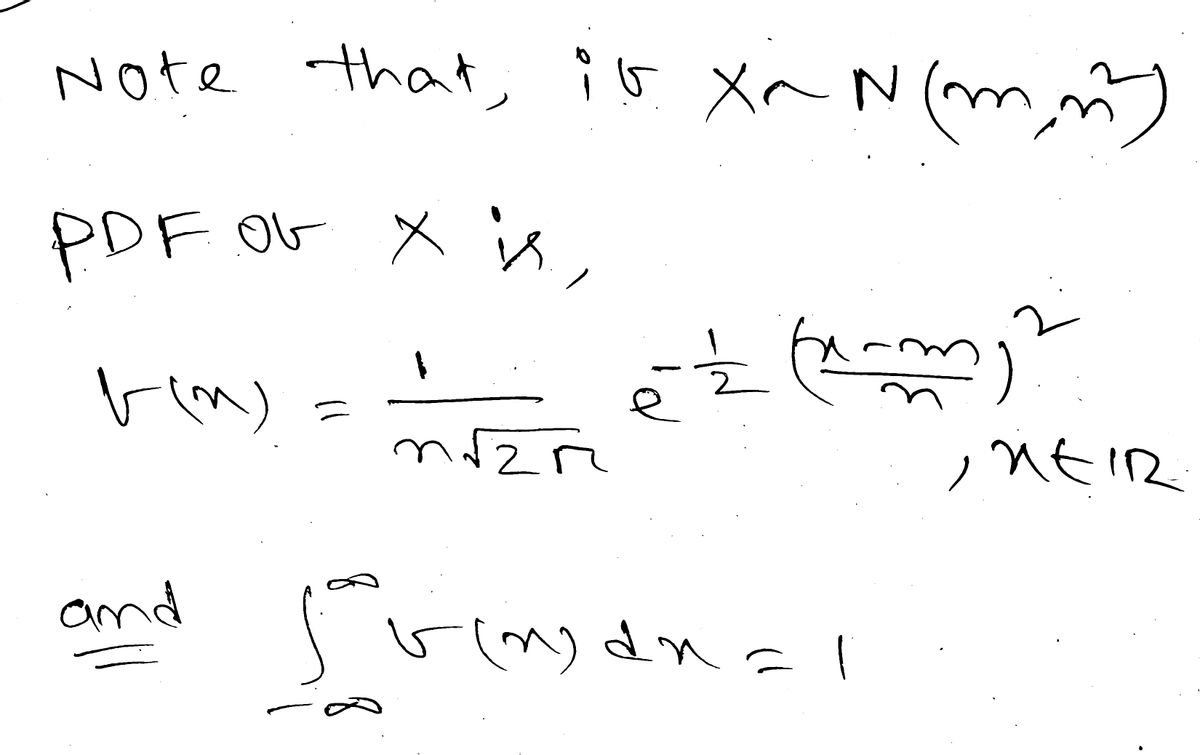 Note that, if X ~ N(m, n²)
PDF of X is,
f(x) = 1/(n√2π) e^(-1/2 ((x-m)/n)²)
, x ∈ ℝ
and ∫_{-∞}^{∞} f(x) dx = 1